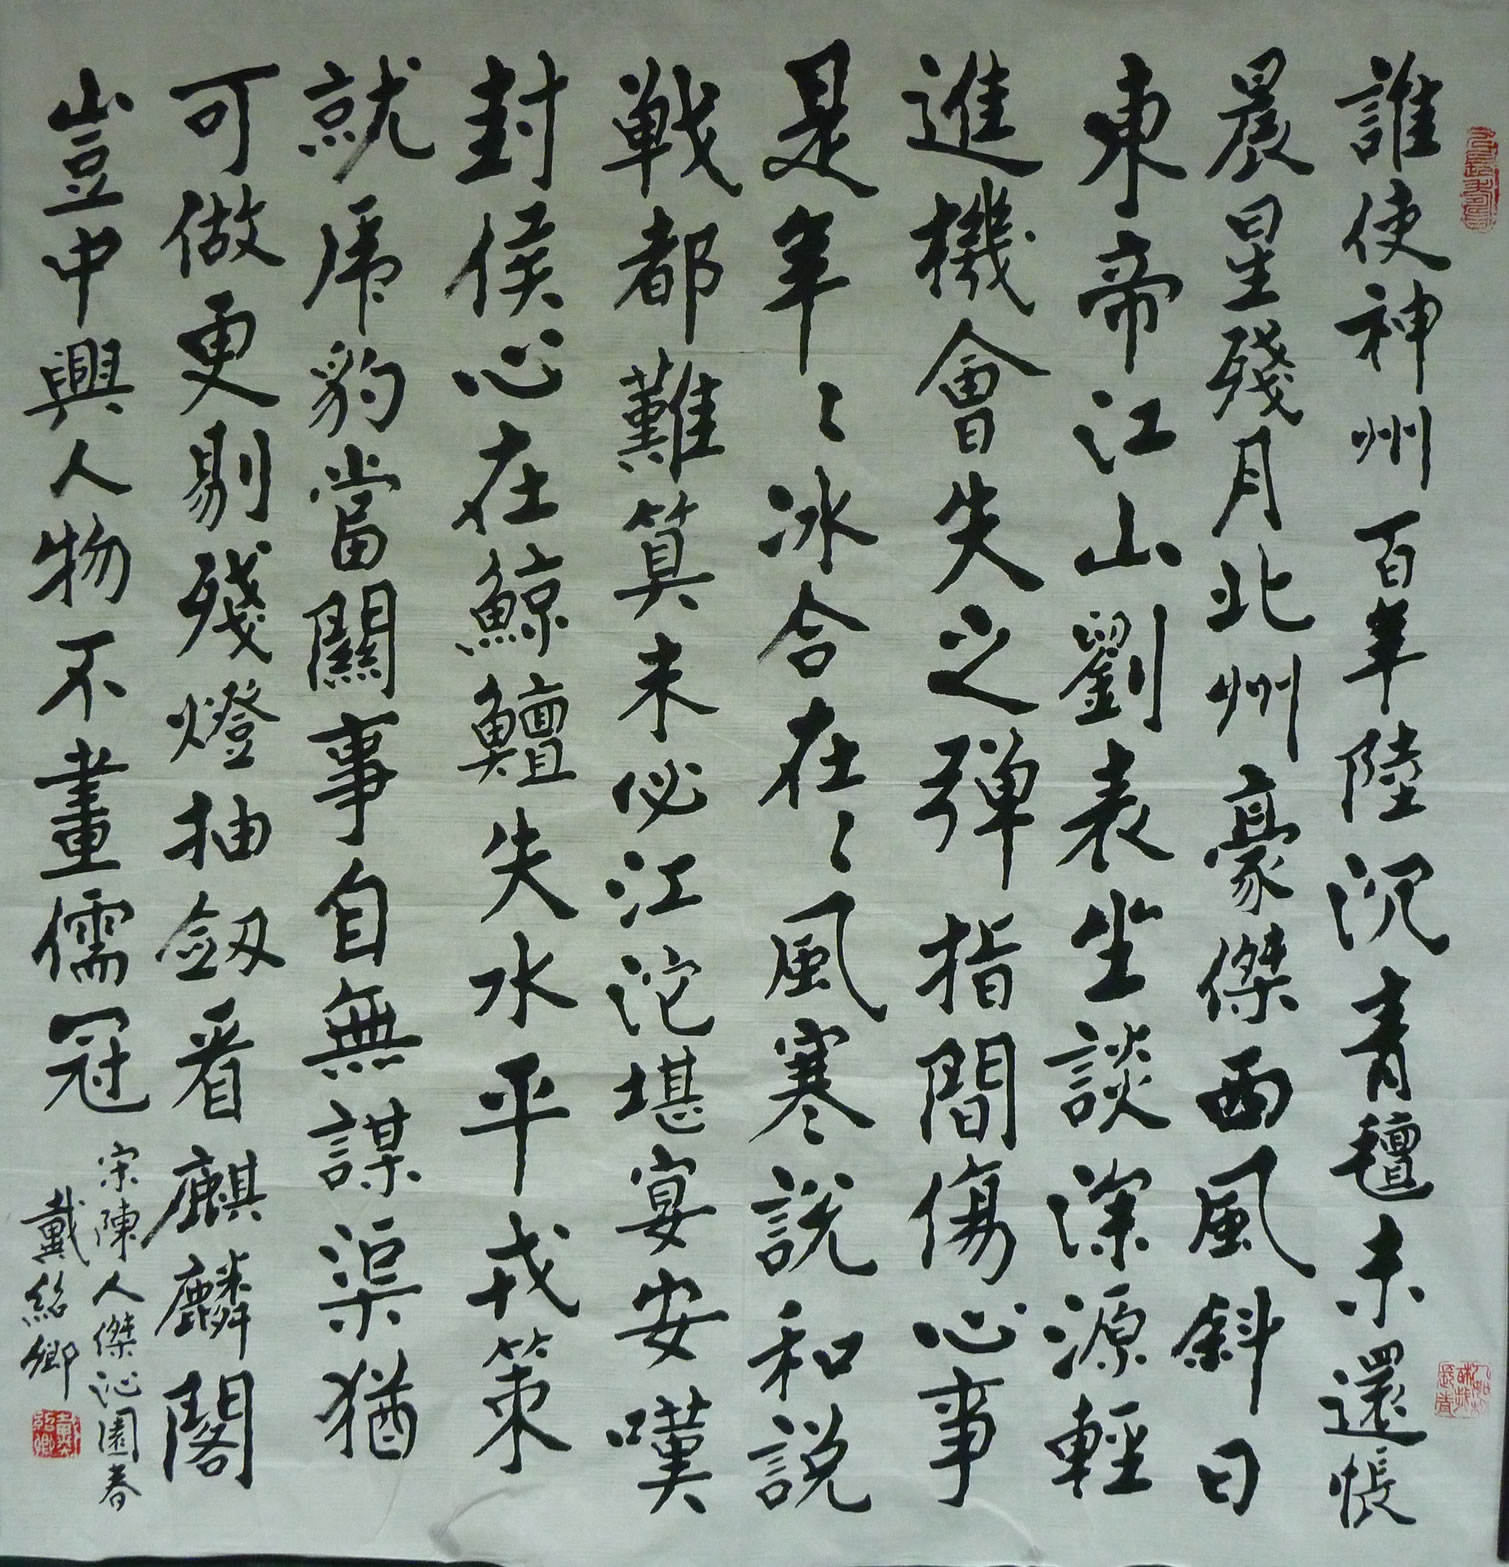 誰使神州百年陸沉青氈未還悵
晨星殘月北州豪傑西風斜日
東帝江山劉表坐談深源輕
進機會失之弾指間傷心事
是年〻冰合在〻風寒說和說
戦都難算未必江沱堪宴安嘆
封侯心在鯨鱣失水平戎策
就虎豹當關事自無謀渠猶
可做更剔殘燈抽劔看麒麟閣
豈中興人物不畫儒冠
宋陳人傑沁園春
戴紹卿
戴紹卿